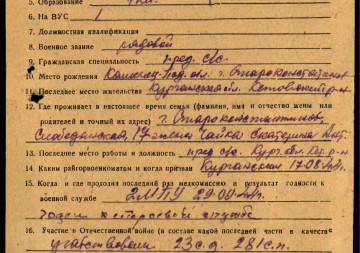 5. Образование
6. На ВУС 1
7. Должностная квалификация
8. Военное звание рядовой
9. Гражданская специальность пред. с/с.
10. Место рождения Каменец-Под. обл. г. Староконстантинов
11. Последнее место жительства Курганская обл. Кетовский р-н
12. Где проживает в настоящее время семья (фамилия, имя и отчество жены или
родителей и точный их адрес) г. Староконстантинов,
Слободинская, 17 жена Чайка Екатерина
13. Последнее место работы и должность пред с/с. Кург. обл. Кет. р-н
14. Каким райгорвоенкоматом и когда призван Курганским 17.08.41г.
15. Когда и где проходил последний раз медкомиссию и результат годности к
военной службе
годен к строевой службе
16. Участие в Отечественной войне (в составе какой последней части в качестве
участвовал 23 с.д. 281 с.п.